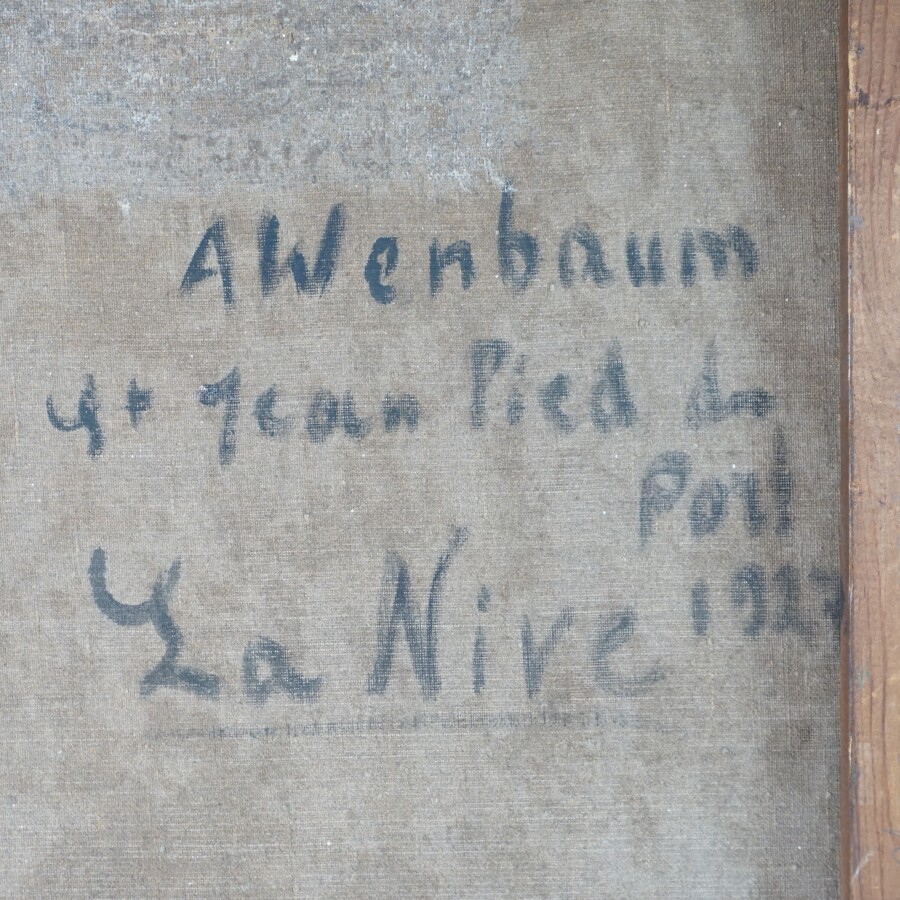 AWenbaum
St Jean Pied de
Port
1927
La Nive